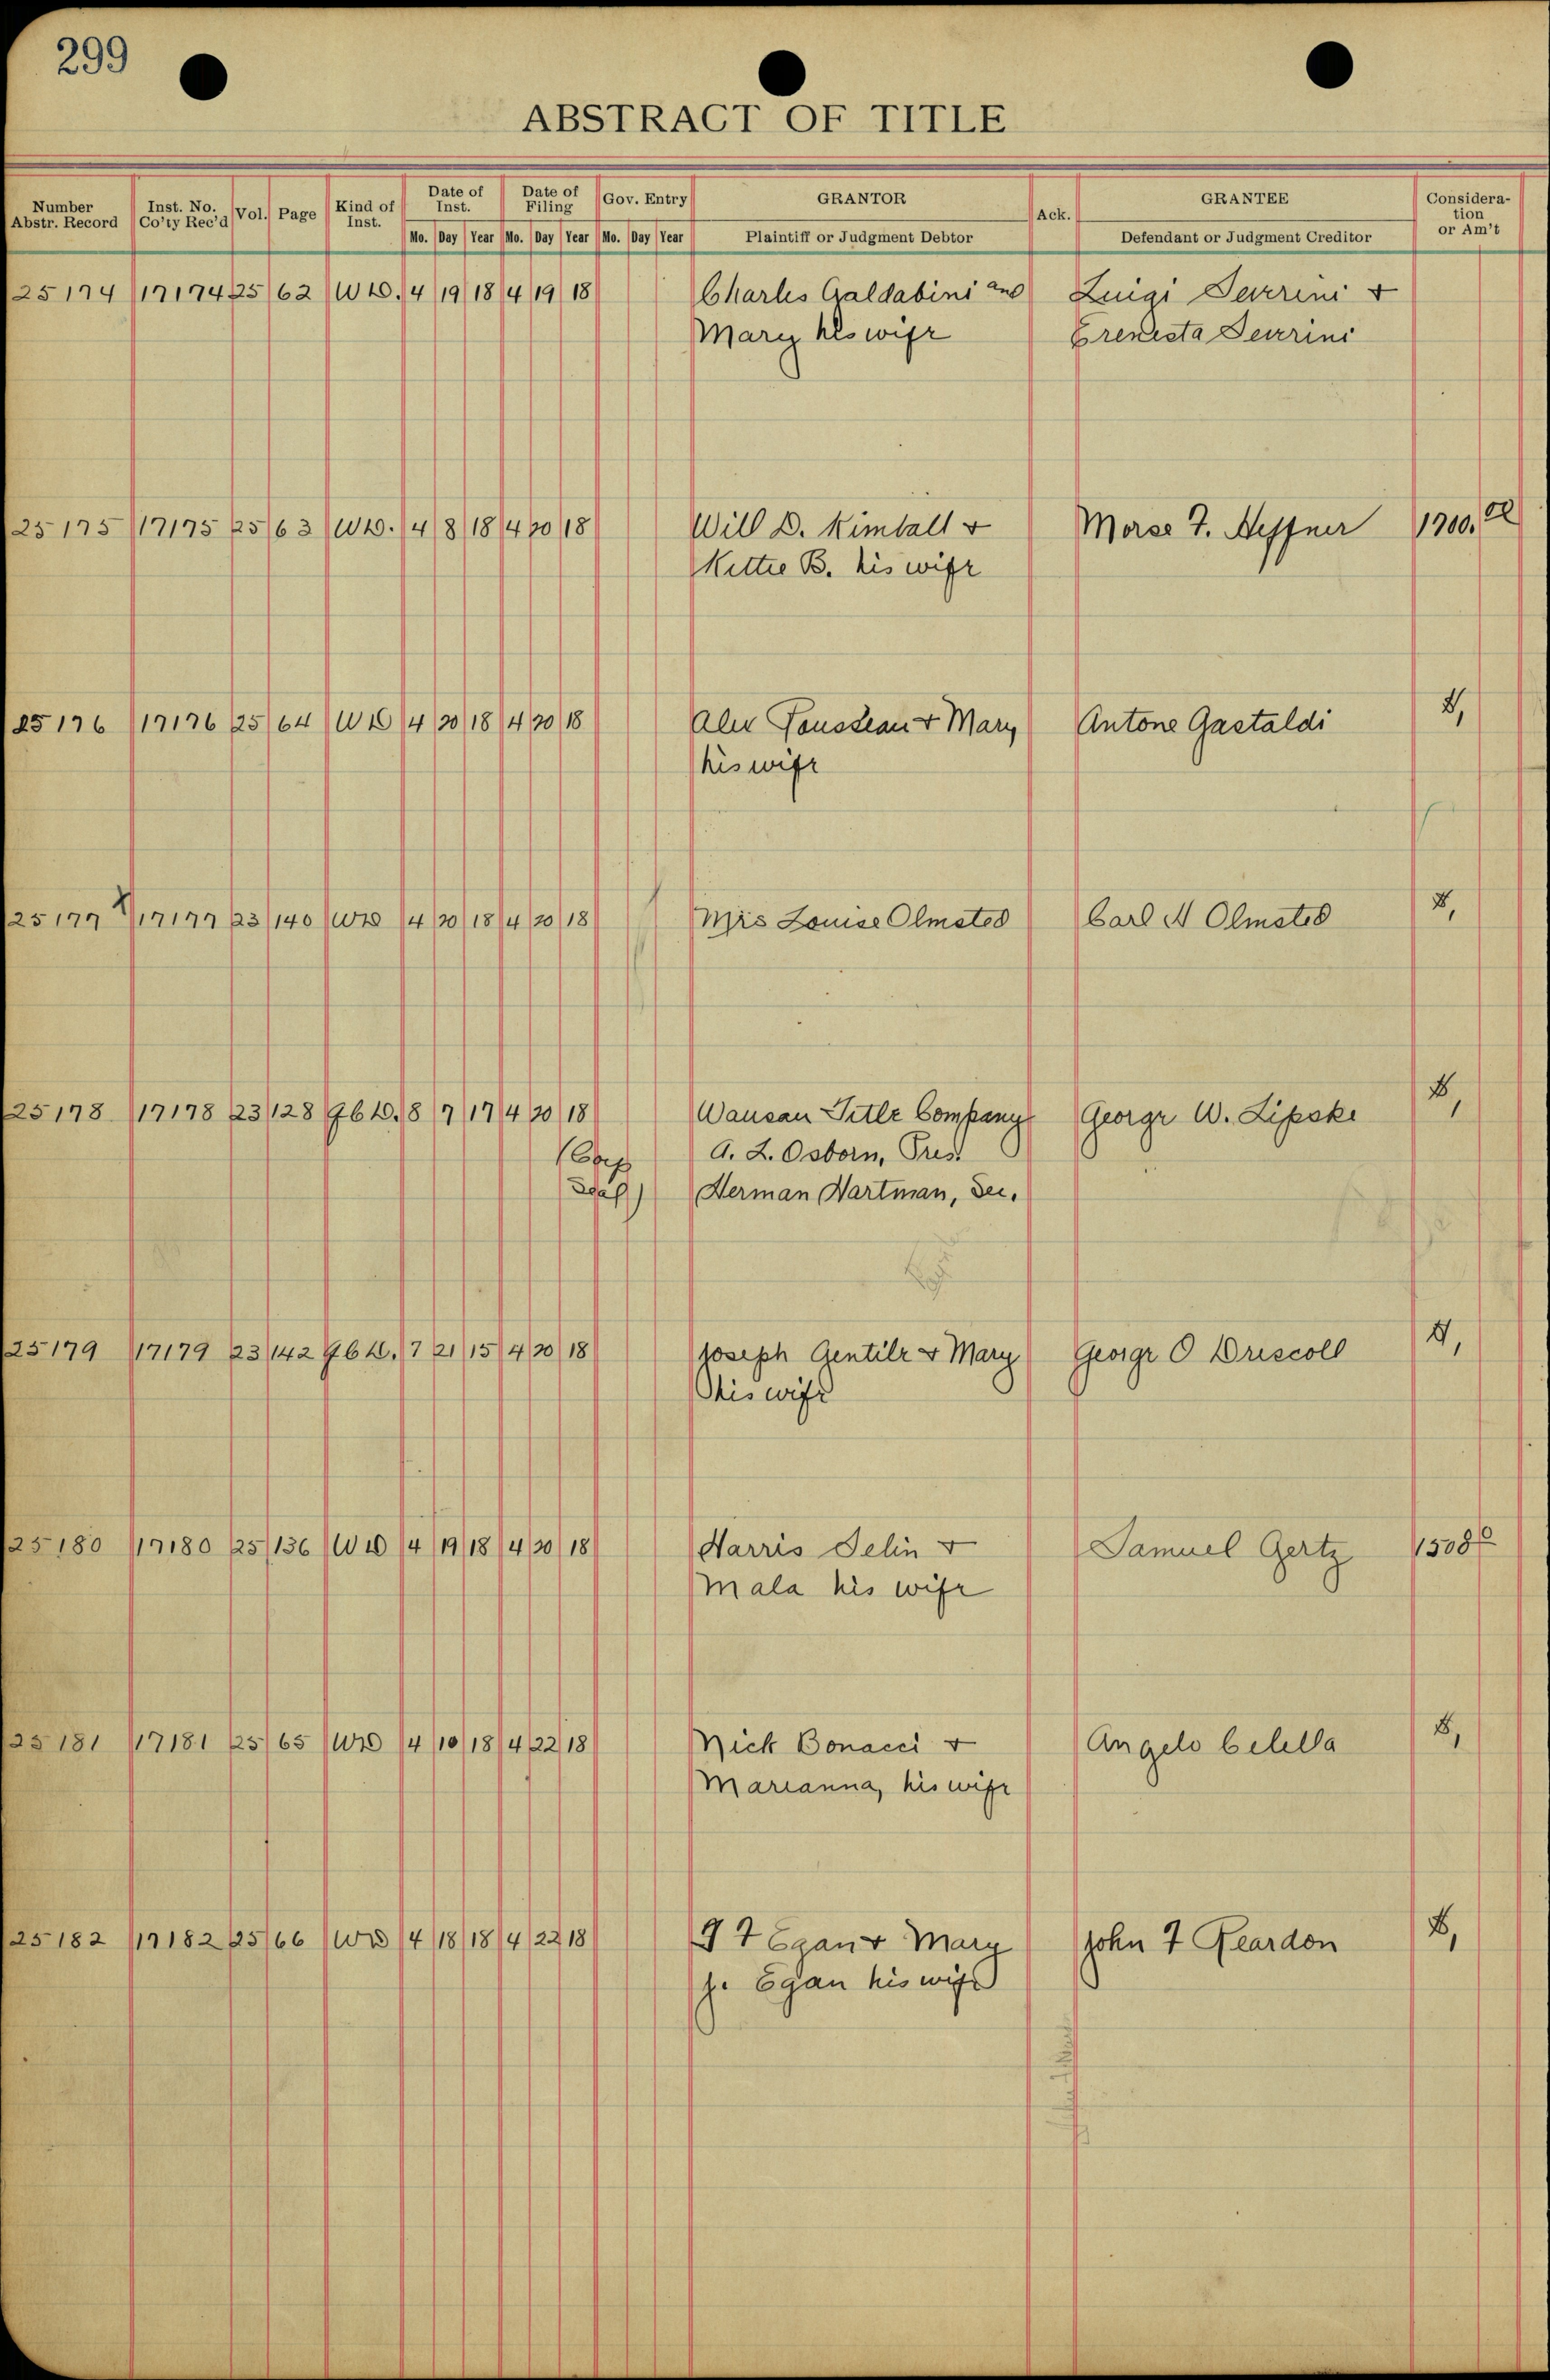 299
ABSTRACT OF TITLE
Number Abstr. Record Inst. No. Co'ty Rec'd Vol. Page Kind of Inst. Date of Inst. Date of Filing Gov. Entry GRANTOR Ack. GRANTEE Considera-tion or Am't
Mo. Day Year Mo. Day Year Mo. Day Year Plaintiff or Judgment Debtor Defendant or Judgment Creditor
25174 17174 25 62 WD. 4 19 18 4 19 18 Charles Galdabini and Luigi Severini &
Mary his wife Severini
25175 17175 25 63 WD. 4 8 18 4 20 18 Will D. Kimball & Morse F. Heffner 1700.00
Kittie B. his wife
25176 17176 25 64 WD 4 20 18 4 20 18 Alex & Mary Antone Gastaldi 1,
his wife
25177 17177 23 140 WD 4 20 18 4 20 18 Mrs Louise Olmsted Carl A Olmsted 1,
25178 17178 23 128 QCD. 8 7 17 4 20 18 Wausau Title Company George W. Lipske 1,
(Corp A. L. Osborn, Pres.
Seal) Herman Hartman, Sec.
25179 17179 23 142 QCD. 7 21 15 4 20 18 Joseph Gentile & Mary George O Driscoll 1,
his wife
25180 17180 25 136 WD 4 19 18 4 20 18 Harris Selin & Samuel Gertz
Mala his wife
25181 17181 25 65 WD 4 10 18 4 22 18 Nick Bonacci & Angelo Celella 1,
Marianna, his wife
25182 17182 25 66 WD 4 18 18 4 22 18 F Egan & Mary John F Reardon 1,
J. Egan his wife